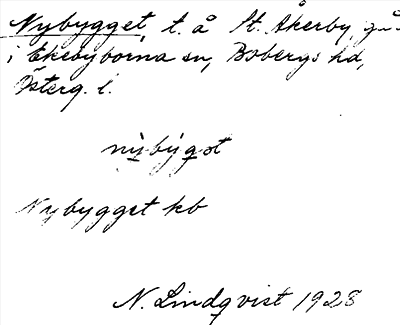 Nybygget, t. å St. Åkerby, gd
i Ekebyborna sn, Bobergs hd,
Österg. l.
nỳbýgət
Nybygget kb
N. Lindqvist 1928